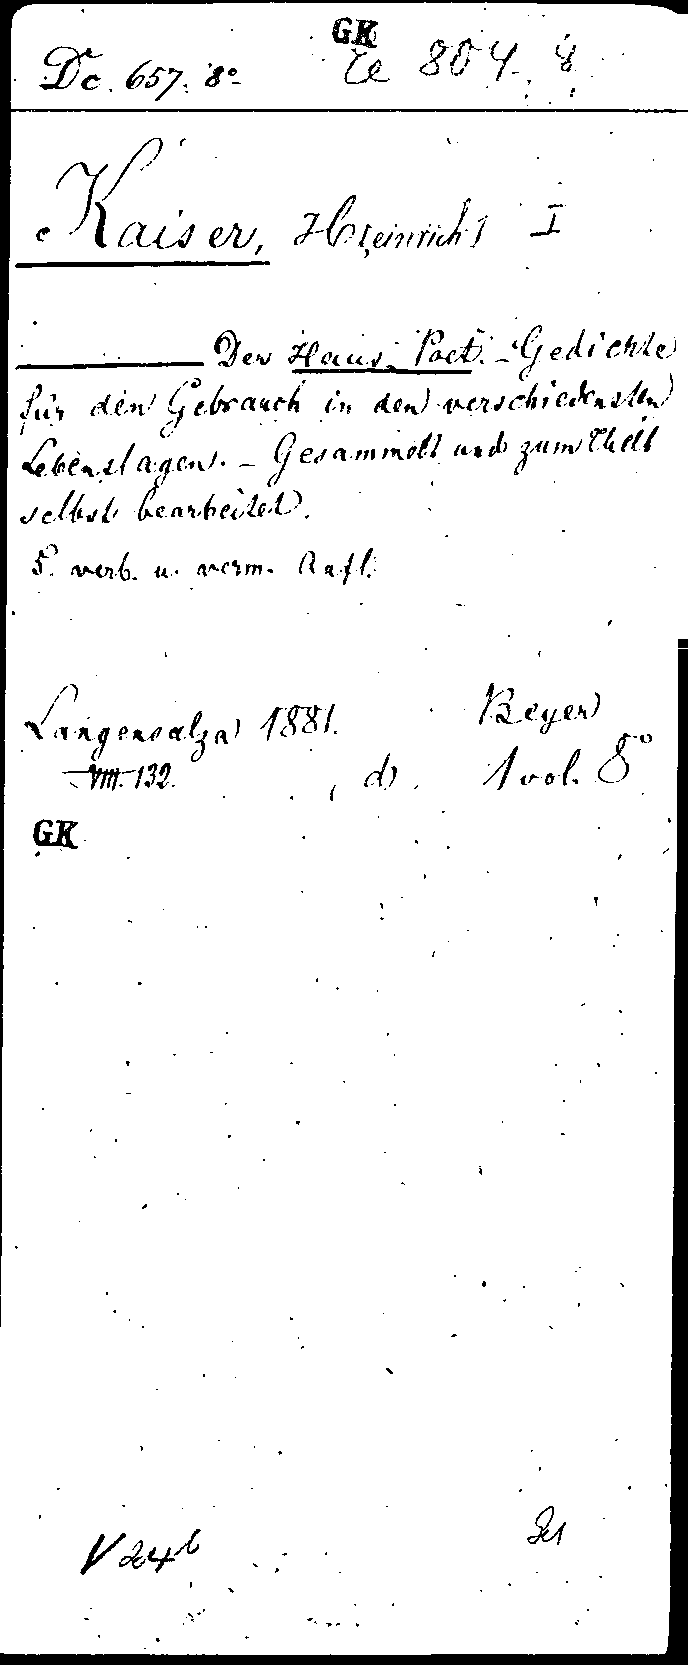 GK
Dc. 657. 8° Te 804. 8
Kaiser, H[einrich] I
Der Haus-Poet. – Gedichte
für den Gebrauch in den verschiedensten
Lebenslagen. – Gesammelt und zum Theil
selbst bearbeitet.
5. verb. u. verm. Aufl.
Langensalza 1881. Beyer
VIII. 132. d. 1 vol. 8°
GK
V 24b